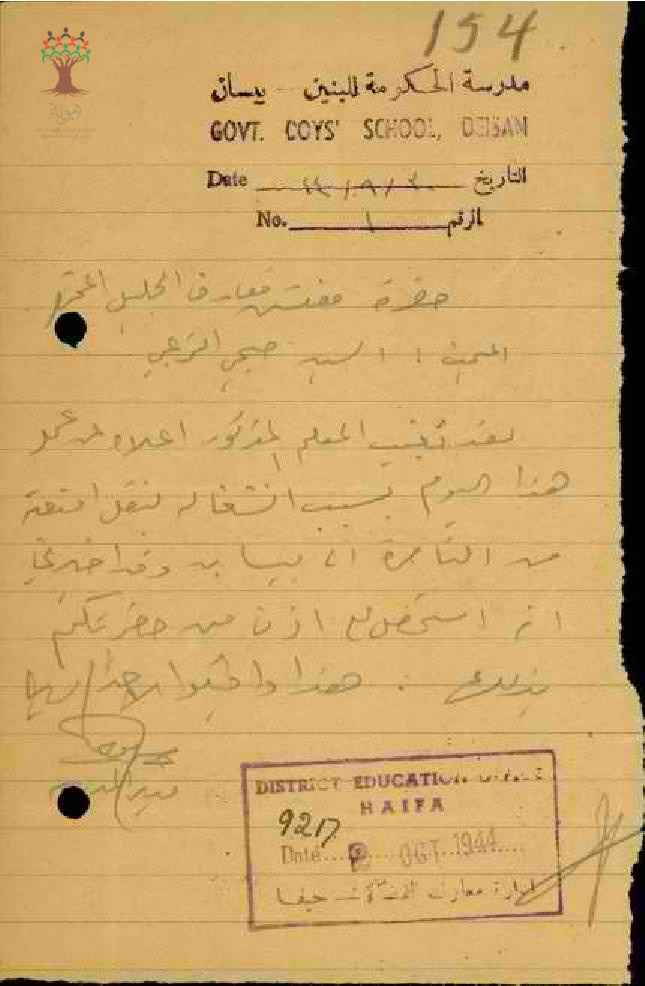 154
هوية
مدرسة الحكومة للبنين - بيسان
GOVT. BOYS' SCHOOL, BEISAN
Date التاريخ
No. ١ الرقم
حضرة مفتش معارف الجليل المحترم
الموضوع : السيد صبحي الزعبي
لقد تغيب المعلم المذكور اعلاه عن عمله
هذا اليوم بسبب انشغاله لنقل امتعته
من الناصرة الى بيسان وقد اخبرني
انه استحصل على اذن من حضرتكم
بذلك . هذا واقبلوا احترامي
مدير المدرسة
DISTRICT EDUCATION OFFICE
HAIFA
9217
Date 2 OCT 1944
ادارة معارف حيفا